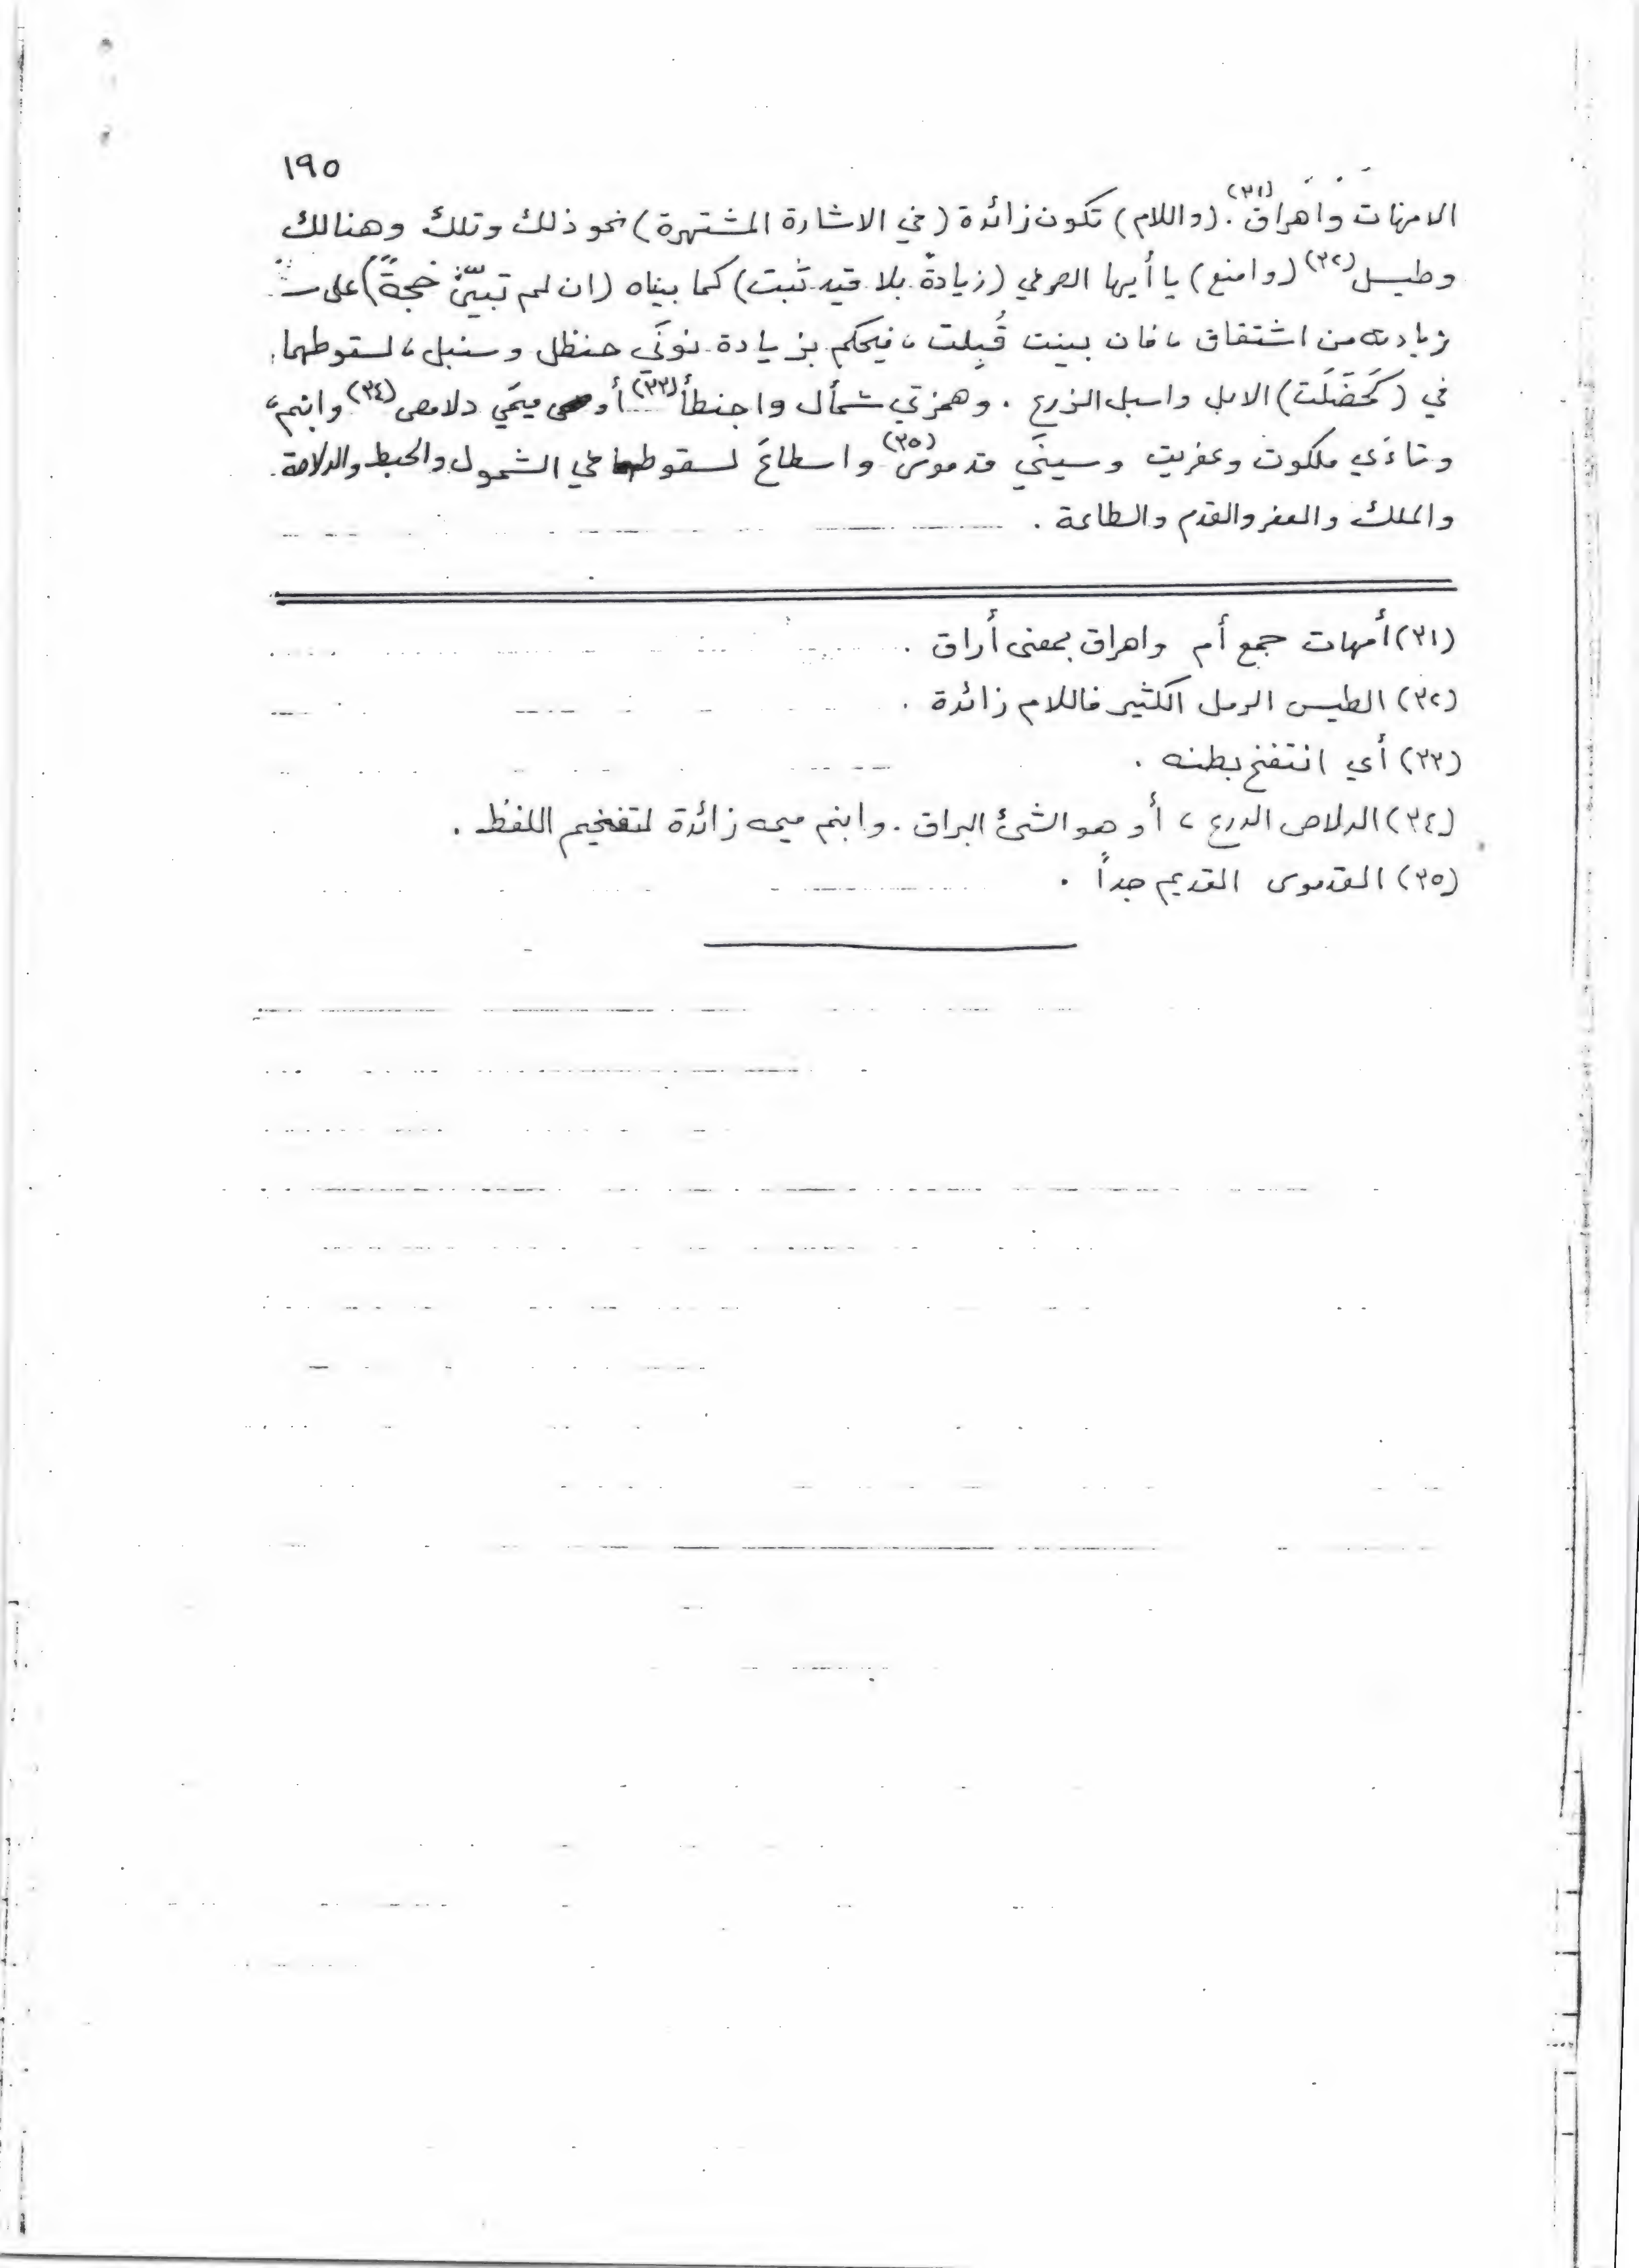 ١٩٥
الامهات واهراق(٣١). (واللام) تكون زائدة (في الاشارة المشتهرة) نحو ذلك وتلك وهنالك
وطيسل(٣٢) (وامنع) يا أيها الصرفي (زيادةً بلا قيد ثبت) كما بيناه (ان لم تبيّن حجةً) على
زيادته من اشتقاق، فان بينت قُبِلت، فيحكم بزيادة نونَي حنظل وسنبل، لسقوطهما
في (كَحَظَلَت) الابل واسبل الزرع. وهمزتي شمأل واحبنطأ(٣٣) أو ميمَي دلامص(٣٤) وابنم،
وتاءَي ملكوت وعفريت وسينَي قدموس(٣٥) واسطاعَ لسقوطها في الشمول والحبط والدلاصة
والملك والعفر والقدم والطاعة.
(٣١) أمهات جمع أم واهراق بمعنى أراق.
(٣٢) الطيس الرمل الكثير فاللام زائدة.
(٣٣) أي انتفخ بطنه.
(٣٤) الدلاص الدرع، أو هو الشئ البراق. وابنم ميمه زائدة لتفخيم اللفظ.
(٣٥) القدموس القديم جداً.